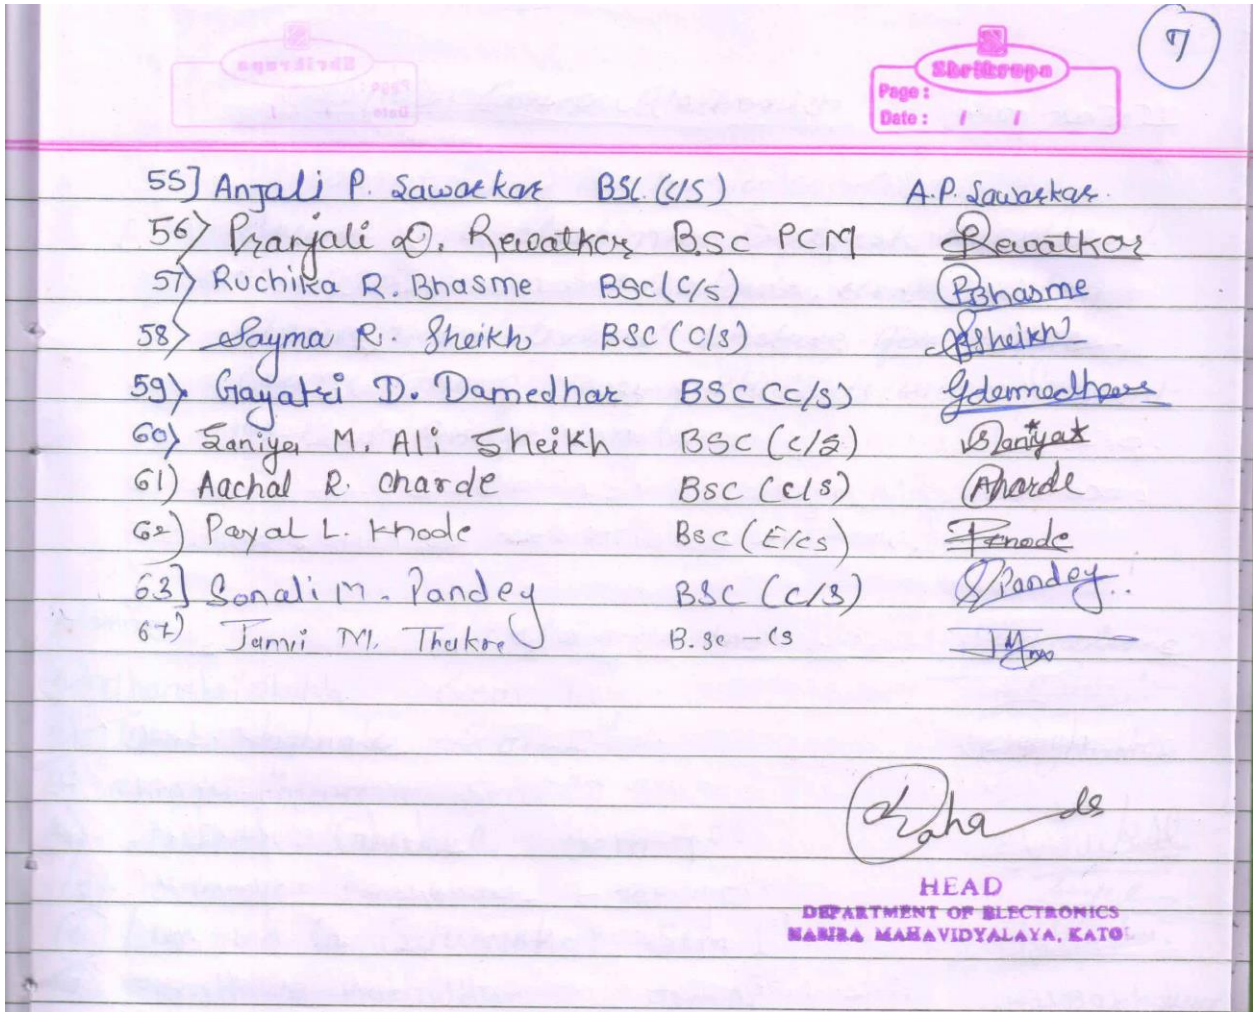 7
Shrikrupa
Page :
Date : / /
55] Anjali P. Sawarkar BSC (C/S) A.P. Sawarkar.
56) Pranjali D. Rewatkar B.sc PCM Rewatkar
57) Ruchika R. Bhasme BSC (C/S) RBhasme
58) Sayma R Sheikh BSC (C/S) Sheikh
59) Gayatri D. Damedhar BSC (C/S)
60) Saniya M. Ali Sheikh BSC (C/S) Saniya
61) Aachal R. Charde BSC (C/S) Aharde
62) Payal L. Khode BSC (E/CS)
63] Sonali M. Pandey BSC (C/S) SPandey..
64) Janvi M. Thakre B.sc - CS
HEAD
DEPARTMENT OF ELECTRONICS
NABIRA MAHAVIDYALAYA, KATOL